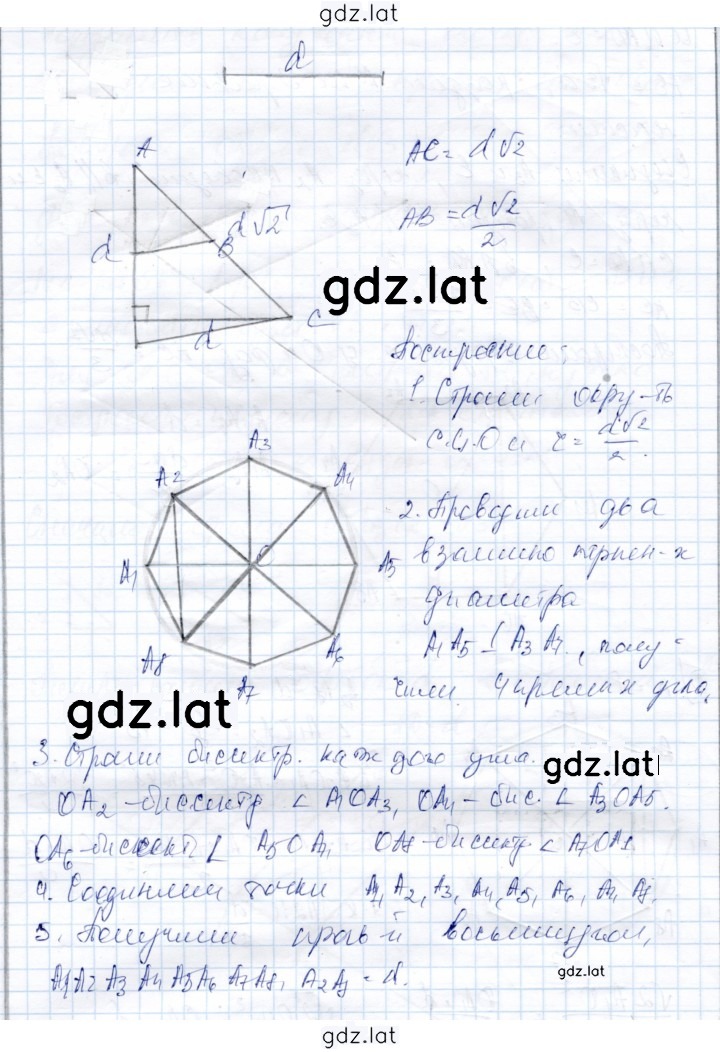 gdz.lat
d
A
AC = d√2
d√2
AB = d√2/2
d
B
gdz.lat
C
d
Построение:
1. Строим окру-ть
с ц. O и r = d√2/2.
A3
A2
A4
2. Проводим два
O
A1
A5
взаимно перпен-х
диаметра
A1A5 ⊥ A3A7, полу-
A8
A6
A7
чили 4 прямых угла.
gdz.lat
3. Строим биссектр. каждого угла.
gdz.lat
OA2 - биссектр ∠ A1OA3, OA4 - бис. ∠ A3OA5.
OA6 - биссект ∠ A5OA7, OA8 - биссектр. ∠ A7OA1
4. Соединяем точки A1, A2, A3, A4, A5, A6, A7, A8.
5. Получили прав-й восьмиугол.
A1A2A3A4A5A6A7A8, A2A8 = d.
gdz.lat
gdz.lat